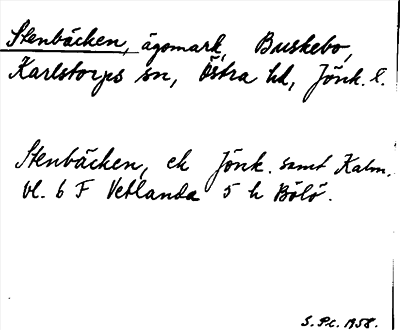 Stenbäcken, ägomark, Buskebo,
Karlstorps sn, Östra hd, Jönk. l.
Stenbäcken, ek Jönk. samt Kalm.
bl. 6 F Vetlanda 5 h Bölö.
S. P.c. 1958.